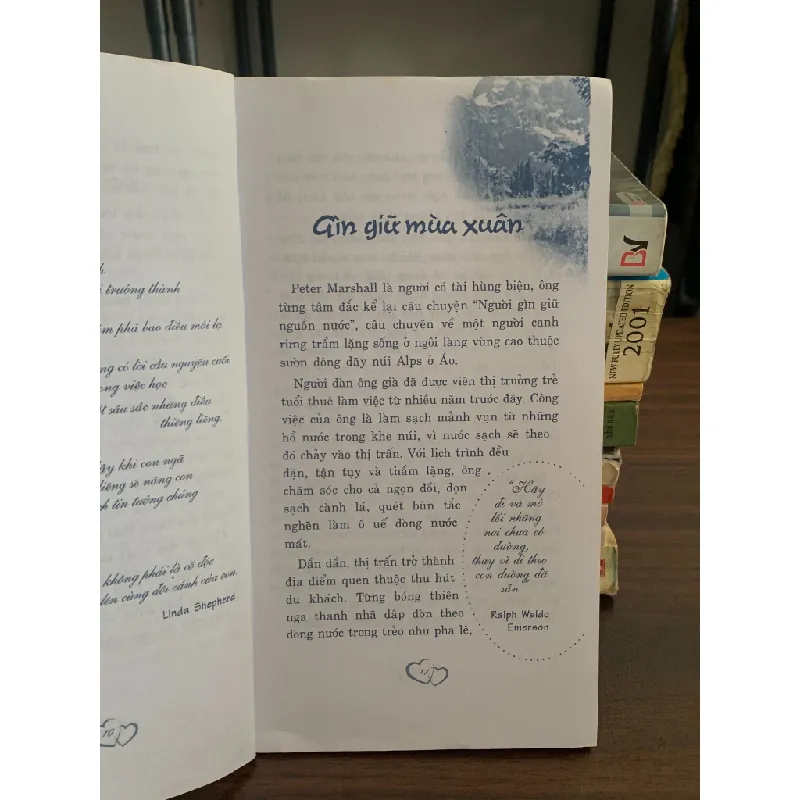 trưởng thành
phá bao điều mới lạ.
có lời cầu nguyện cuối
việc học
sâu sắc những điều
thiêng liêng.
khi con ngã
sẽ nâng con
lên tưởng chừng
không phải là cô độc
lên cùng đôi cánh của con.
Linda Shepherd
10
Gìn giữ mùa xuân
Peter Marshall là người có tài hùng biện, ông
từng tâm đắc kể lại câu chuyện "Người gìn giữ
nguồn nước", câu chuyện về một người canh
rừng trầm lặng sống ở ngôi làng vùng cao thuộc
sườn đông dãy núi Alps ở Áo.
Người đàn ông già đã được viên thị trưởng trẻ
tuổi thuê làm việc từ nhiều năm trước đây. Công
việc của ông là làm sạch mảnh vụn từ những
hồ nước trong khe núi, vì nước sạch sẽ theo
đó chảy vào thị trấn. Với lịch trình đều
đặn, tận tụy và thầm lặng, ông
chăm sóc cho cả ngọn đồi, dọn
sạch cành lá, quét bùn tắc
nghẽn làm ô uế dòng nước
mát.
Dần dần, thị trấn trở thành
địa điểm quen thuộc thu hút
du khách. Từng bóng thiên
nga thanh nhã dập dồn theo
dòng nước trong trẻo như pha lê,
"Hãy
đi và mở
lối những
nơi chưa có
đường,
thay vì đi theo
con đường đã
sẵn
Ralph Waldo
Emerson
BV
NEW FULLY UPDATED EDITION
2001